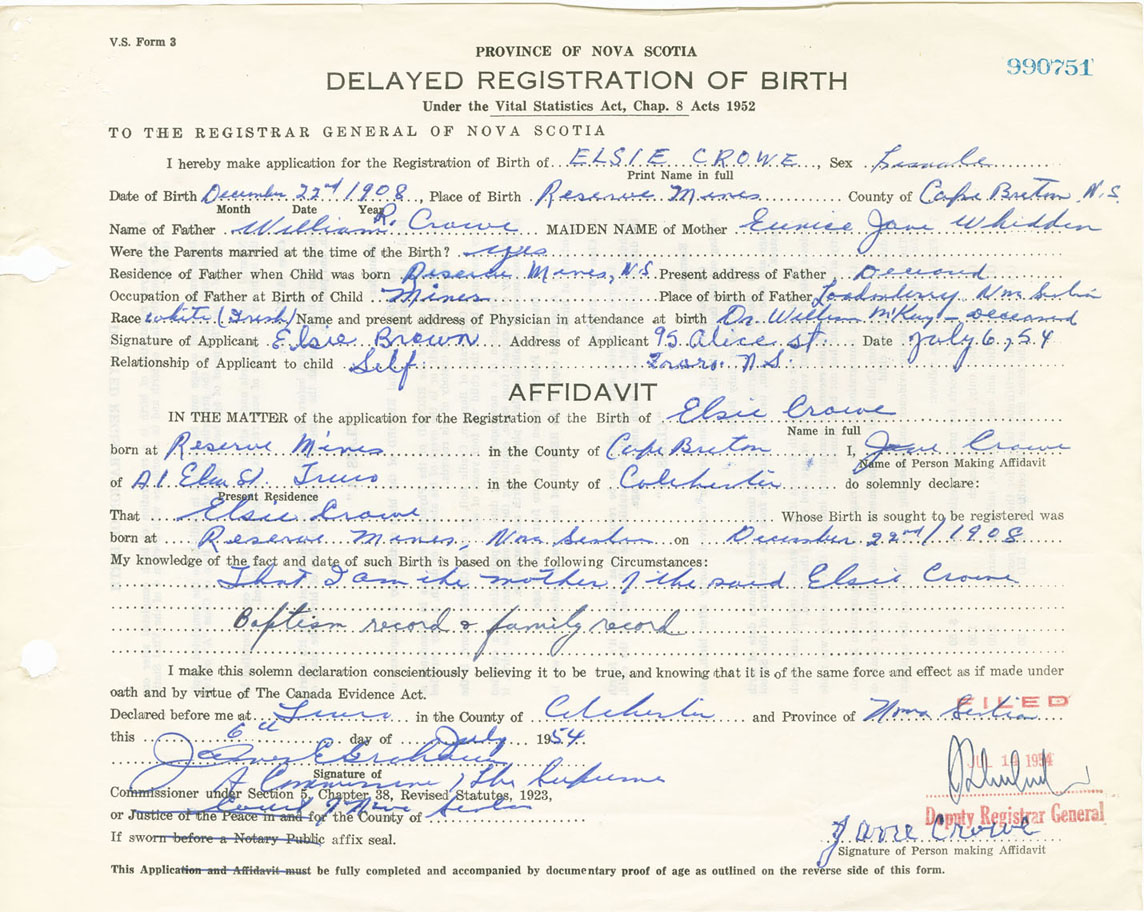 V.S. Form 3
PROVINCE OF NOVA SCOTIA
990751
DELAYED REGISTRATION OF BIRTH
Under the Vital Statistics Act, Chap. 8 Acts 1952
TO THE REGISTRAR GENERAL OF NOVA SCOTIA
I hereby make application for the Registration of Birth of ELSIE CROWE, Sex Female
Print Name in full
Date of Birth December 22nd/1908, Place of Birth Reserve Mines County of Cape Breton N.S.
Month Date Year
Name of Father William R. Crowe MAIDEN NAME of Mother Eunice Jane Whidden
Were the Parents married at the time of the Birth? yes
Residence of Father when Child was born Reserve Mines, N.S. Present address of Father, Deceased
Occupation of Father at Birth of Child Miner Place of birth of Father Londonderry Nova Scotia
Race White (Irish) Name and present address of Physician in attendance at birth Dr. William McKay - deceased
Signature of Applicant Elsie Brown Address of Applicant 95 Alice St. Date July 6, 54
Relationship of Applicant to child Self. Truro. N.S.
AFFIDAVIT
IN THE MATTER of the application for the Registration of the Birth of Elsie Crowe
Name in full
born at Reserve Mines in the County of Cape Breton I, Jane Crowe
Name of Person Making Affidavit
of Elm St Truro in the County of Colchester do solemnly declare:
Present Residence
That Elsie Crowe Whose Birth is sought to be registered was
born at Reserve Mines, Nova Scotia on December 22nd/1908
My knowledge of the fact and date of such Birth is based on the following Circumstances:
That I am the mother of the said Elsie Crowe
Baptism record & family record
I make this solemn declaration conscientiously believing it to be true, and knowing that it is of the same force and effect as if made under
oath and by virtue of The Canada Evidence Act.
Declared before me at Truro in the County of Colchester and Province of Nova Scotia
FILED
this 6th day of July 1954
JUL 14 1954
Signature of
A Commissioner of the Supreme
Commissioner under Section 5, Chapter 38, Revised Statutes, 1923,
Court of Nova Scotia
or Justice of the Peace in and for the County of
Deputy Registrar General
Jane Crowe
If sworn before a Notary Public affix seal.
Signature of Person making Affidavit
This Application and Affidavit must be fully completed and accompanied by documentary proof of age as outlined on the reverse side of this form.